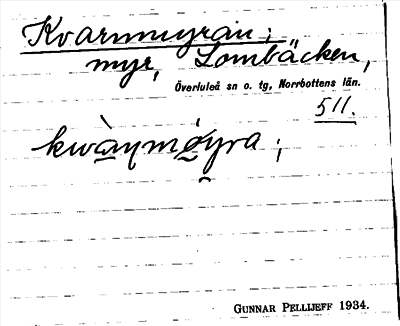 Kvarnmyran;
myr, Lombäcken,
Överluleå sn o. tg, Norrbottens län.
511.
kwàṇmó̤yra;
GUNNAR PELLIJEFF 1934.